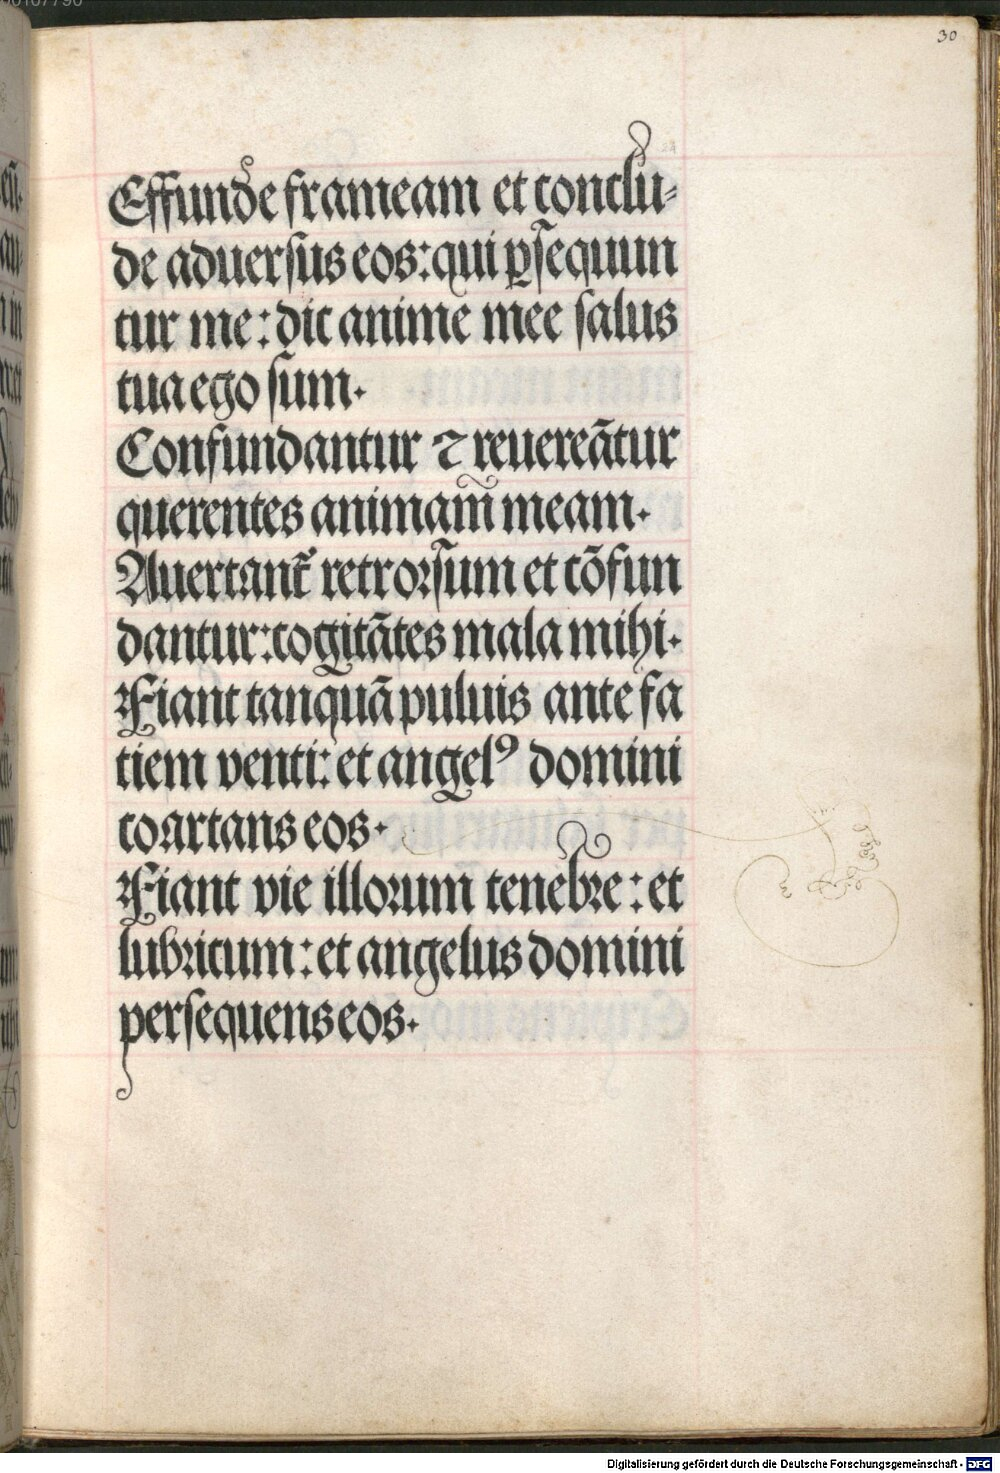 30
Effunde frameam et conclu-
de aduersus eos: qui ꝑsequun
tur me: dic anime mee salus
tua ego sum.
Confundantur ⁊ reuereãtur
querentes animam̃ meam.
Auertant᷑ retrorsum et cõfun
dantur: cogitãtes mala mihi.
Fiant tanquã puluis ante fa
ciem venti: et angelꝰ domini
coartans eos.
Fiant vie illorum tenebre: et
lubricum: et angelus domini
persequens eos.
Digitalisierung gefördert durch die Deutsche Forschungsgemeinschaft - DFG